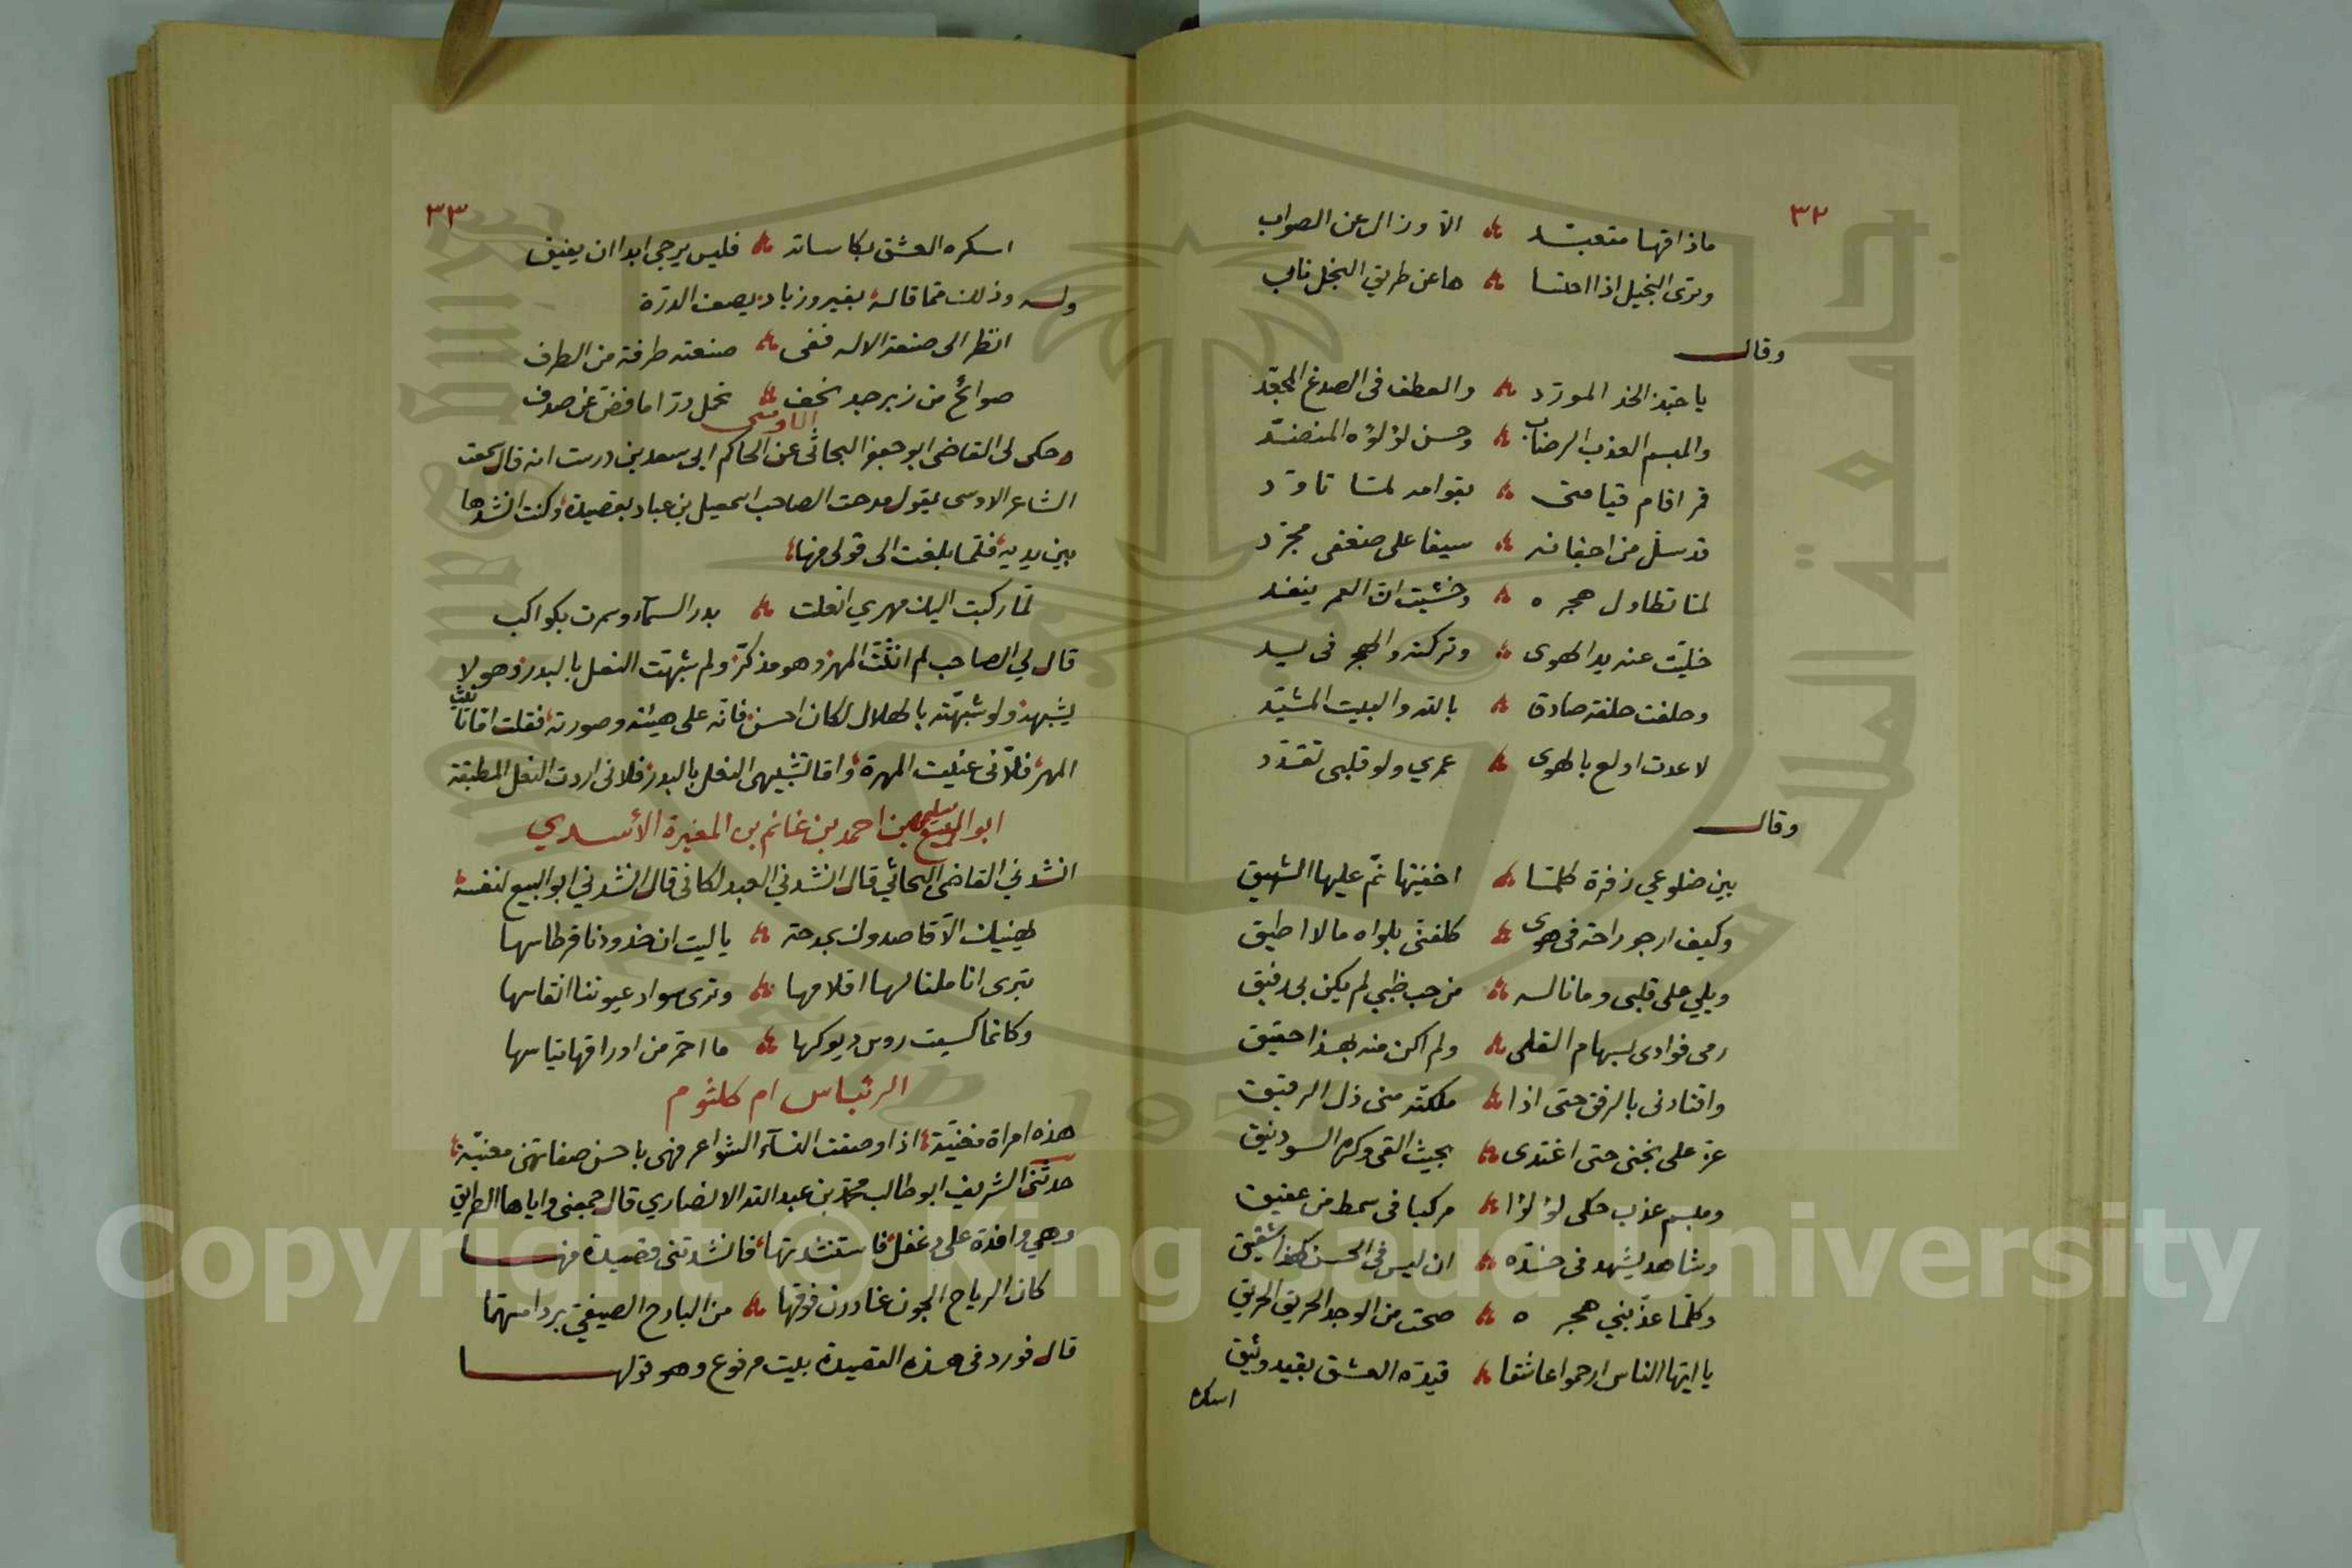 ٣٢
ماذاقها متعبد ۞ الا وزال عن الصواب
وترى البخيل اذا احتسا ۞ ها عن طريق البخل نابي
وقال
يا حبذا الخد المورد ۞ والعطف فى الصدغ المجعد
والمبسم العذب الرضاب ۞ وحسن لؤلؤه المنضد
قمر اقام قيامتى ۞ بقوامه لمتا تاود
قد سل من اجفانه ۞ سيفا على ضعفى مجرد
لمتا تطاول هجره ۞ وخشيت ان العمر ينفد
خليت عنه يد الهوى ۞ وتركته والهجر فى يد
وحلفت حلفة صادق ۞ بالله والبيت المشيد
لاعدت اولع بالهوى ۞ عمري ولو قلبى تقدد
وقال
بين ضلوعي زفرة كلمتا ۞ اخفيتها نمّ عليها الشهيق
وكيف ارجو راحة فى هوى ۞ كلفنى بلواه مالا اطيق
ويلي على قلبى وما ناله ۞ من حب ظبي لم يكن بى رفيق
رمى فوادى بسهام القلى ۞ ولم اكن منه بهذا حقيق
واقتادنى بالرفق حتى اذا ۞ ملكته منى ذل الرقيق
عز على بختى حتى اغتدى ۞ بحيث القى وكره السوذنيق
ومبسم عذب حكى لؤلؤا ۞ مركبا فى سمط من عقيق
وشاهد يشهد فى خده ۞ ان ليس فى الحسن لهذا شقيق
وكلما عذبني هجره ۞ صحت من الوجد الحريق الحريق
يا ايها الناس ارحموا عاشقا ۞ قيده العشق بقيد وثيق
اسكره
٣٣
اسكره العشق بكاساته ۞ فليس يرجى ابدا ان يفيق
وله وذلك مما قاله بفيروزباد يصف الذرة
انظر الى صنعة الاله ففى ۞ صنعته طرفة من الطرف
صوائح من زبرجد نحف ۞ تحمل درا ما فض عن صدف
الاوسى
وحكى لى القاضى ابو جعفر البحاثى عن الحاكم ابى سعد بن درست انه قال سمعت
الشاعر الاوسى يقول مدحت الصاحب اسمعيل بن عباد بقصيدة وكنت انشدها
بين يديه فلما بلغت الى قولى منها
لما ركبت اليك مهري انعلت ۞ بدر السماء وسمرت بكواكب
قال لي الصاحب لم انثت المهر وهو مذكر ولم شبهت النعل بالبدر وهو لا
يشبهه ولو شبهته بالهلال لكان احسن فانه على هيئته وصورته فقلت اما تانيث
المهر فلانى عنيت المهرة واما تشبيهى النعل بالبدر فلانى اردت النعل المطبقة
ابو الربيع سليمن بن احمد بن غانم بن المغيرة الأسدي
انشدني القاضى البحاثي قال انشدني العبدلكانى قال انشدني ابو الربيع لنفسه
يهنيك الا قاصدوك بمدحة ۞ يا ليت ان خدودنا قرطاسها
تبرى اناملنا لها اقلامها ۞ وترى سواد عيوننا انقاسها
وكانما كسيت روس ديوكها ۞ ما احمر من اوراقها تباسها
الرئباس ام كلثوم
هذه امراة مغنية اذا وصفت النسآء الشواعر فهى باحسن صفاتهن مغنية
حدثنى الشريف ابو طالب محمد بن عبد الله الانصاري قال جمعنى واياها الطريق
وهي وافدة على دغفل فاستنشدتها فانشدتنى قصيدة منها
كان الرياح الجون غادرن فوقها ۞ من البارح الصيفي بردا مسهما
قال فورد فى هذه القصيدة بيت مرفوع وهو قولها
Copyright © King Saud University